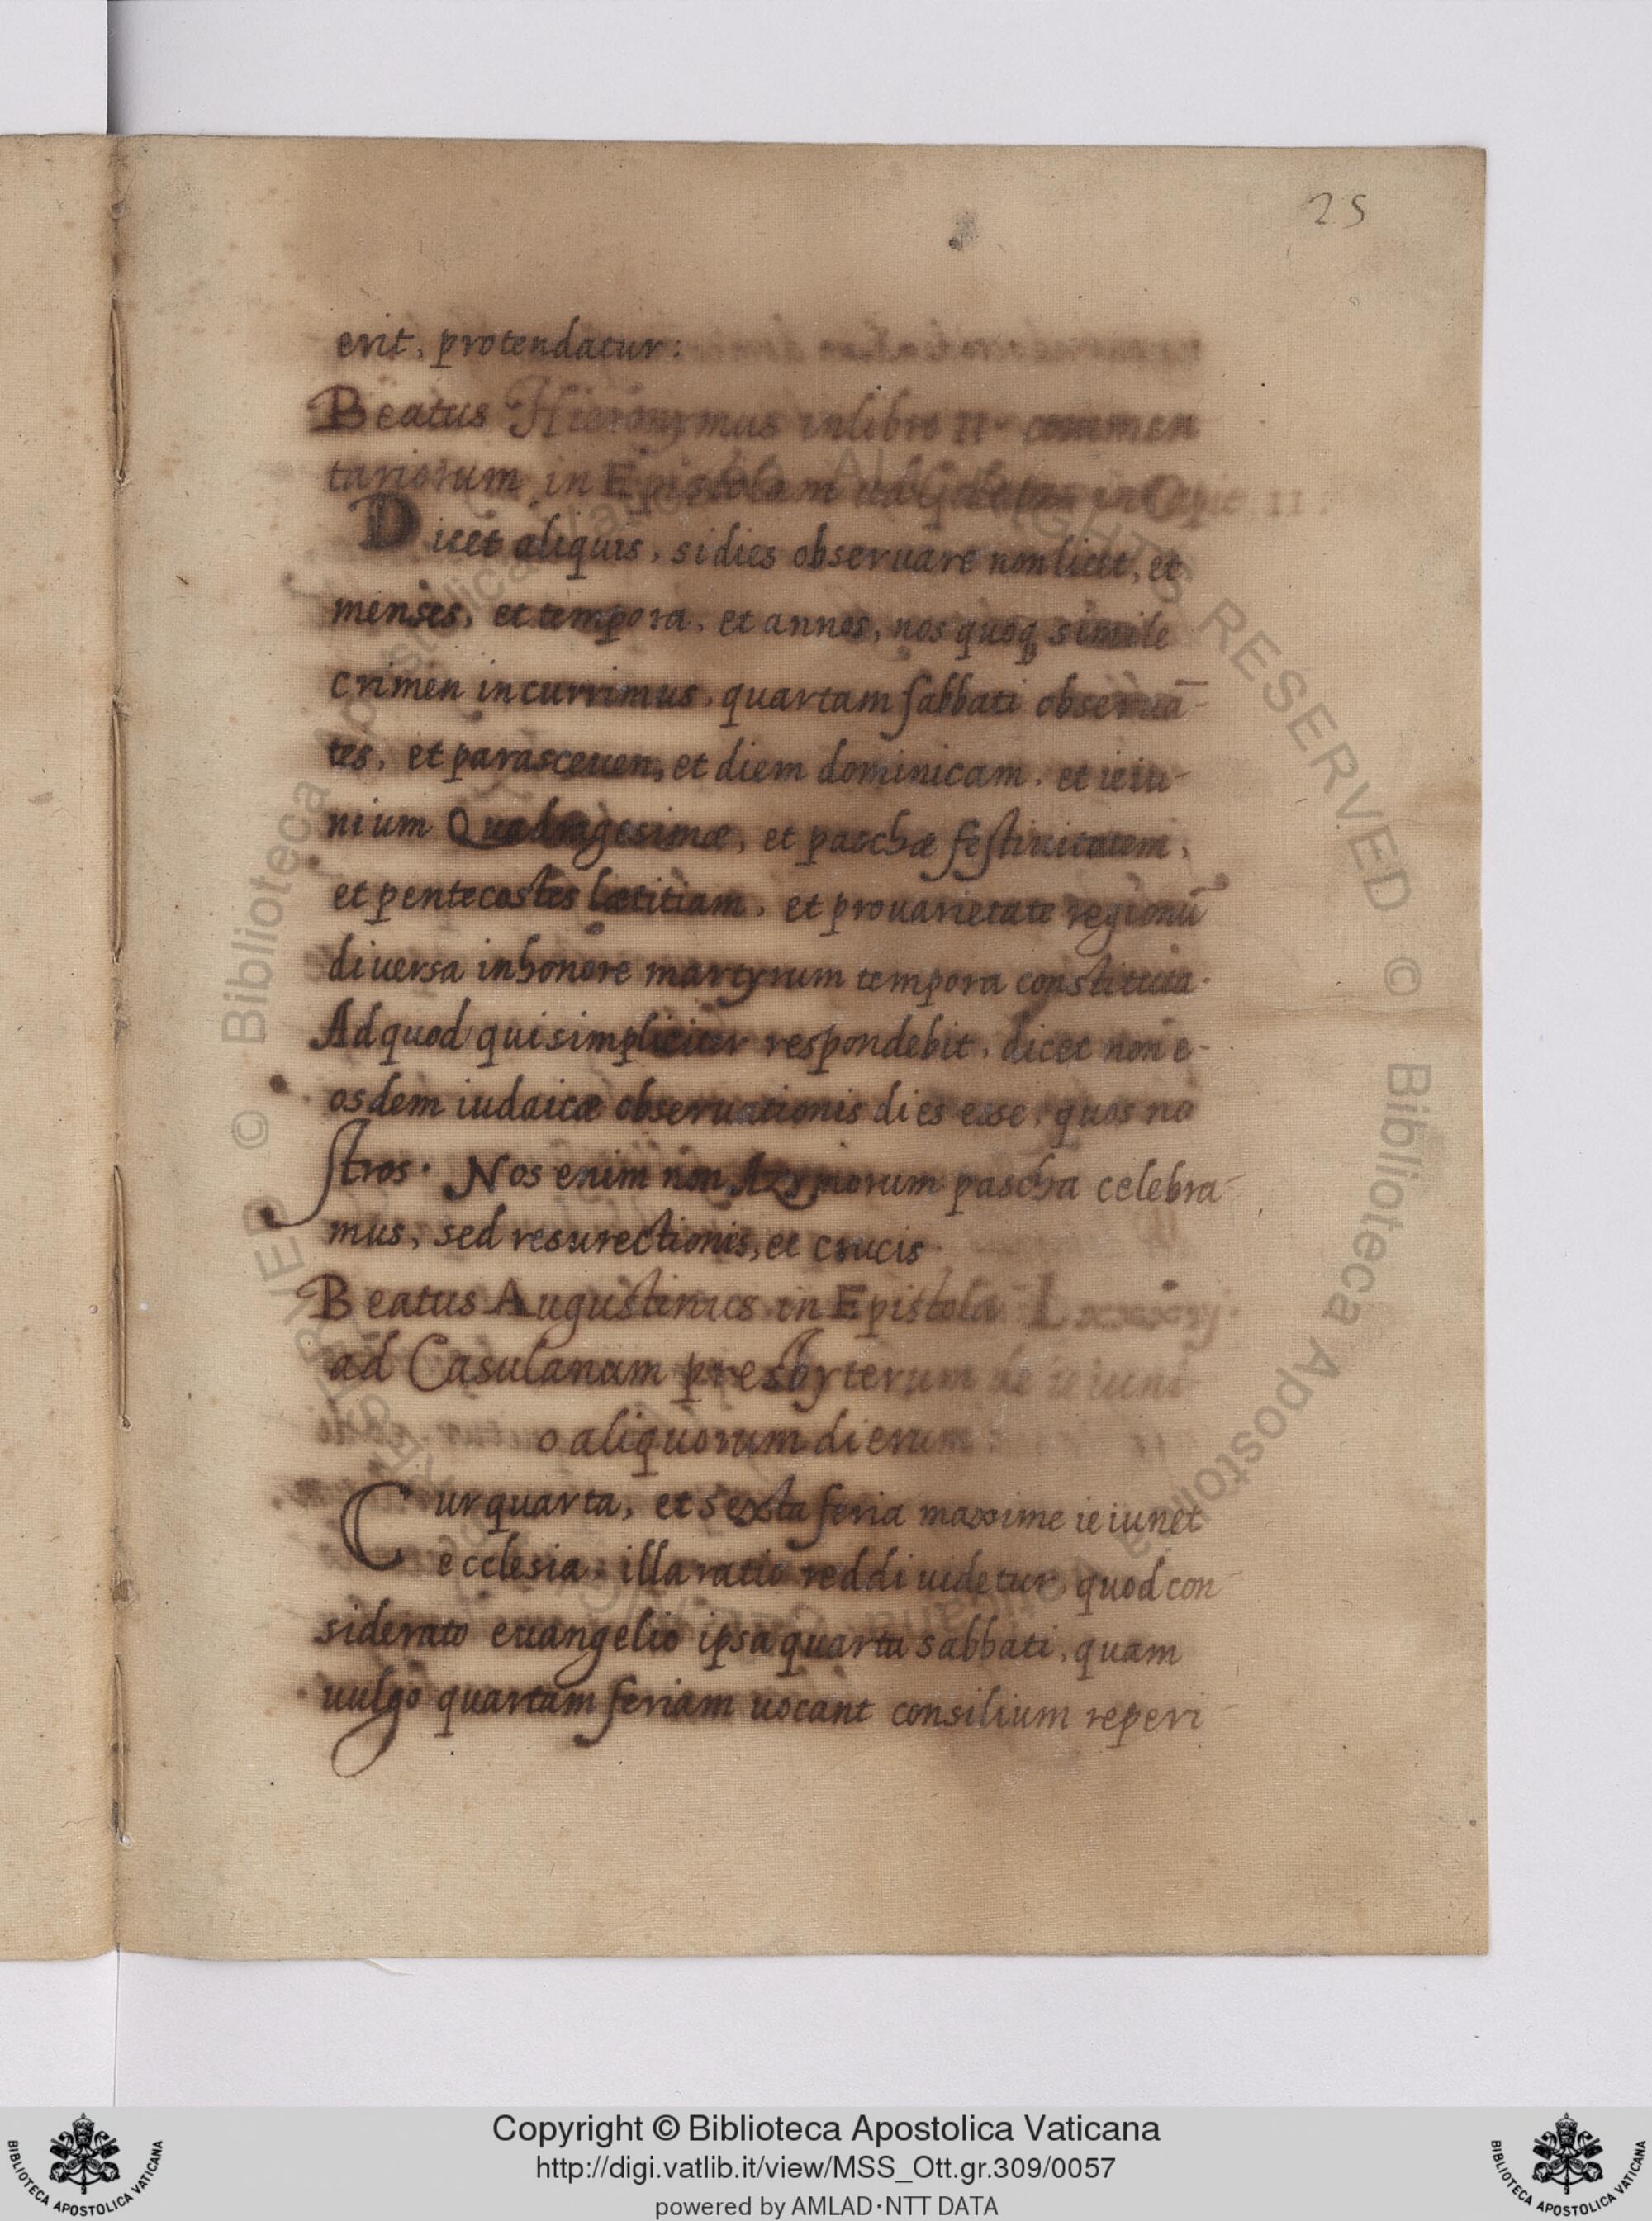 25
erit, protendatur:
Beatus Hieronymus in libro II commen
tariorum in Epistolam ad Galatas in Capit II.
Dicet aliquis, si dies obseruare non licet, et
menses, et tempora, et annos, nos quoq simile
crimen incurrimus, quartam sabbati obseruā-
tes, et parasceuen, et diem dominicam, et ieiu-
nium Quadragesimæ, et paschæ festiuitatem,
et pentecostes lætitiam, et pro uarietate regionū
diuersa in honore martyrum tempora constituta.
Ad quod qui simpliciter respondebit, dicet non e-
osdem iudaicæ obseruationis dies esse, quos no
stros. Nos enim non Azymorum pascha celebra-
mus, sed resurectionis, et crucis
Beatus Augustinus in Epistola
ad Casulanum presbyterum de ieiuni
o aliquorum dierum:
Cur quarta, et sexta feria maxime ieiunet
ecclesia, illa ratio reddi uidetur, quod con-
siderato euangelio ipsa quarta sabbati, quam
uulgo quartam feriam uocant consilium reperi-
Copyright © Biblioteca Apostolica Vaticana
http://digi.vatlib.it/view/MSS_Ott.gr.309/0057
powered by AMLAD·NTT DATA
BIBLIOTECA APOSTOLICA VATICANA
BIBLIOTECA APOSTOLICA VATICANA